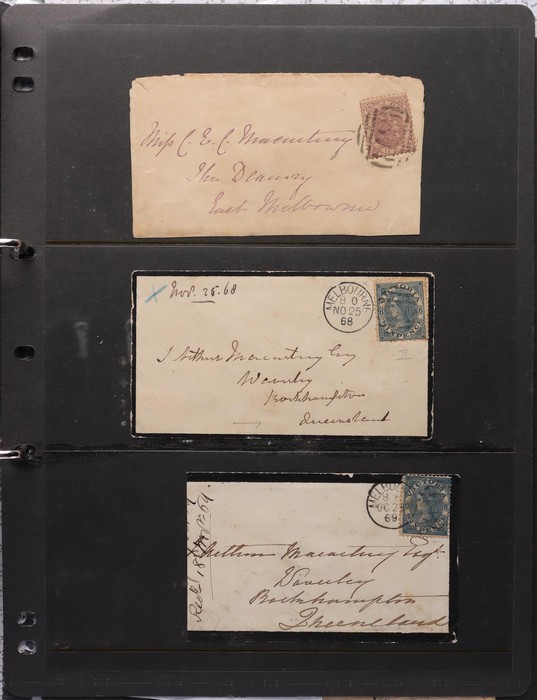 Miss C. E. C. Macartney
The Deanery
East Melbourne
Novr. 25. 68
MELBOURNE
8 O
NO 25
68
VICTORIA
SIXPENCE
J Arthur Macartney Esq
Waverley
Rockhampton
Queensland
MELBOU
OC 2
69
VICTORIA
Arthur Macartney Esqr.
Waverley
Rockhampton
Queensland
Recd. 18 Novr. 69.